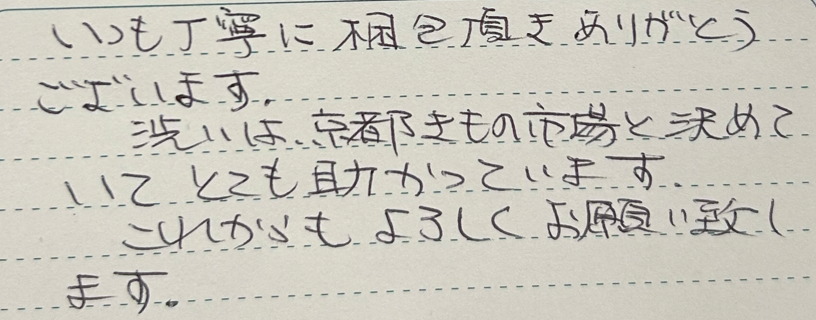 いつも丁寧に梱包頂きありがとう
ございます。
洗いは、京都きもの市場と決めて
いてとても助かっています。
これからもよろしくお願い致し
ます。